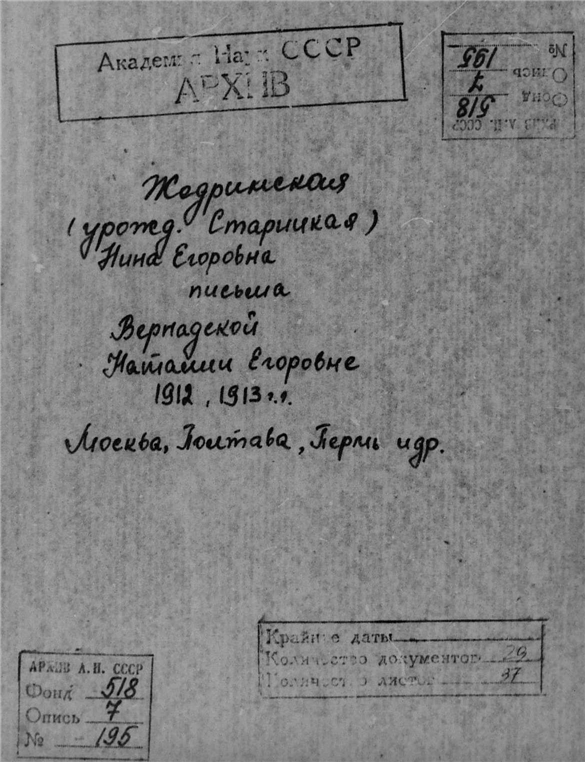 Академия Наук СССР
АРХИВ
АРХИВ А.Н. СССР
Фонд 518
Опись 7
№ 195
Жедринская
(урожд. Старицкая)
Нина Егоровна
письма
Вернадской
Наталии Егоровне
1912, 1913 г.г.
Москва, Полтава, Пермь и др.
Крайние даты
Количество документов 29
Количество листов 37
АРХИВ А.Н. СССР
Фонд 518
Опись 7
№ 195